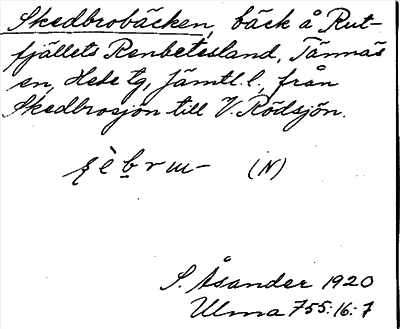 Skedbrobäcken, bäck å Rut-
fjällets Renbetesland, Tännäs
sn, Hede tg, Jämtl. l., från
Skedbrosjön till V. Rödsjön.
(N)
S. Åsander 1920
Ulma 755:16:7